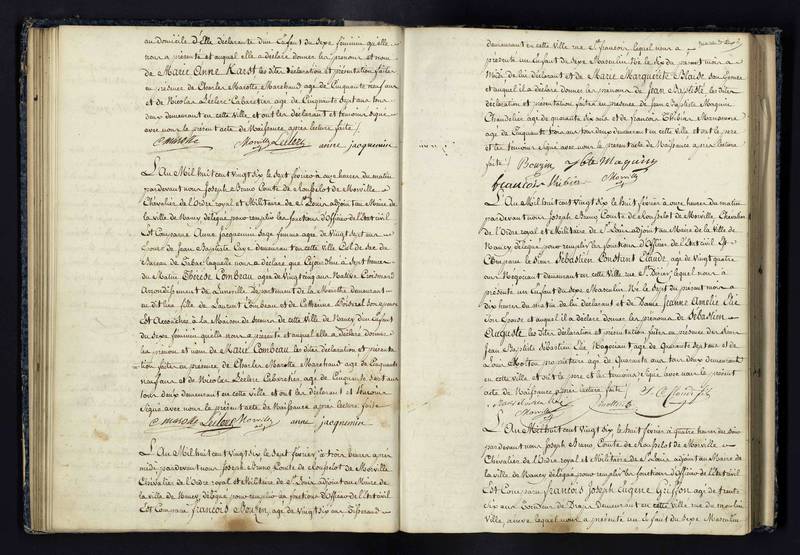 au domicile d'Elle déclarante d'un Enfant du Sexe féminin qu'elle
nous a présenté et auquel elle a déclaré donner les prénoms et nom
de Marie Anne Karst les dites Déclaration et présentation faites
en présence de Charles Marotte Marchand agé de Cinquante neuf ans
et de Nicolas Leclerc Cabaretier agé de Cinquante Sept ans tous
deux demeurant en cette Ville et ont les déclarant et témoins signé
avec nous le présent acte de Naissance après lecture faite /.
C marotte Morville Leclerc anne jacquemin
L'An Mil huit cent Vingt Six le Sept février à onze heures du matin
pardevant nous Joseph Bruno Comte de Rousselot de Morville
Chevalier de l'Ordre royal et Militaire de St Louis adjoint au Maire de
la Ville de Nancy délégué pour remplir les fonctions d'Officier de l'Etat Civil
Est Comparue Anne Jacquemin Sage femme agée de Vingt Sept ans
Epouse de Jean Baptiste demeurant en cette Ville Cul de Sac du
Bureau de Tabac laquelle nous a déclaré que Cejourd'hui à Sept heures
du Matin Thérèse Combeau agée de Vingt cinq ans Native
Arrondissement de Lunéville Département de la Meurthe demeurant
en dit lieu fille de Laurent Combeau et de Catherine son épouse
Est Accouchée à la Maison de Secours de cette Ville de Nancy d'un Enfant
du Sexe féminin qu'elle nous a présenté et auquel elle a déclaré donner
les prénom et nom de Marie Combeau les dites déclaration et présenta-
tion faites en présence de Charles Marotte Marchand agé de Cinquante
neuf ans et de Nicolas Leclerc Cabaretier agé de Cinquante Sept ans
tous deux demeurant en cette Ville et ont les déclarant et témoins
Signé avec nous le présent acte de Naissance après lecture faite
C marotte Leclerc Morville anne jacquemin
L'An Mil huit cent Vingt Six le Sept février à trois heures après
midi pardevant nous Joseph Bruno Comte de Rousselot de Morville
Chevalier de l'Ordre royal et Militaire de St Louis adjoint au Maire de
la Ville de Nancy délégué pour remplir les fonctions d'Officier de l'Etat Civil
Est Comparu François Bouzin, agé de Vingt Six ans
demeurant en cette Ville rue St francois, lequel nous a
présenté un Enfant du Sexe Masculin Né le Six du présent mois à
Midi de lui déclarant et de Marie Marguerite Blaise Son Epouse
et auquel il a déclaré donner les prénoms de Jean Baptiste, les dites
déclaration et présentation faites en présence de Jean Baptiste Maguin
Chandelier agé de quarante Six ans et de François Thibier Manoeuvre
agé de Cinquante trois ans tous deux demeurant en cette Ville et ont le père
et les témoins Signé avec nous le présent acte de Naissance après lecture
faite /. Bouzin J bte Maguin
francois thibier Morville
L'An Mil huit cent Vingt Six le huit février à onze heures du matin
pardevant nous Joseph Bruno Comte de Rousselot de Morville, Chevalier
de l'Ordre royal et Militaire de St Louis, adjoint au Maire de la Ville de
Nancy délégué pour remplir les fonctions d'Officier de l'Etat Civil Est
Comparu le Sieur Sébastien Constant Claude, agé de Vingt quatre
ans Négociant demeurant en cette Ville rue St Dizier, lequel nous a
présenté un Enfant du Sexe Masculin Né le Sept du présent mois à
dix heures du matin de lui déclarant et de Dame Jeanne Amélie
Son Epouse et auquel il a déclaré donner les prénoms de Sébastien
Auguste les dites déclaration et présentation faites en présence des Sieurs
Jean Baptiste Sébastien Négociant agé de Quarante Sept ans et de
Louis propriétaire agé de Quarante ans tous deux demeurant
en cette Ville et ont le père et les témoins Signé avec nous le présent
acte de Naissance après lecture faite /. S. C. Claude fils
Morville
L'An Mil huit cent Vingt Six le huit février à quatre heures du soir
pardevant nous Joseph Bruno Comte de Rousselot de Morville,
Chevalier de l'Ordre royal et Militaire de St Louis adjoint au Maire de
la Ville de Nancy délégué pour remplir les fonctions d'Officier de l'Etat Civil
Est Comparu francois Joseph Eugène Griffon agé de trente
Six ans Tondeur de Draps Demeurant en cette Ville rue du moulin
Ville, lequel nous a présenté un Enfant du Sexe Masculin